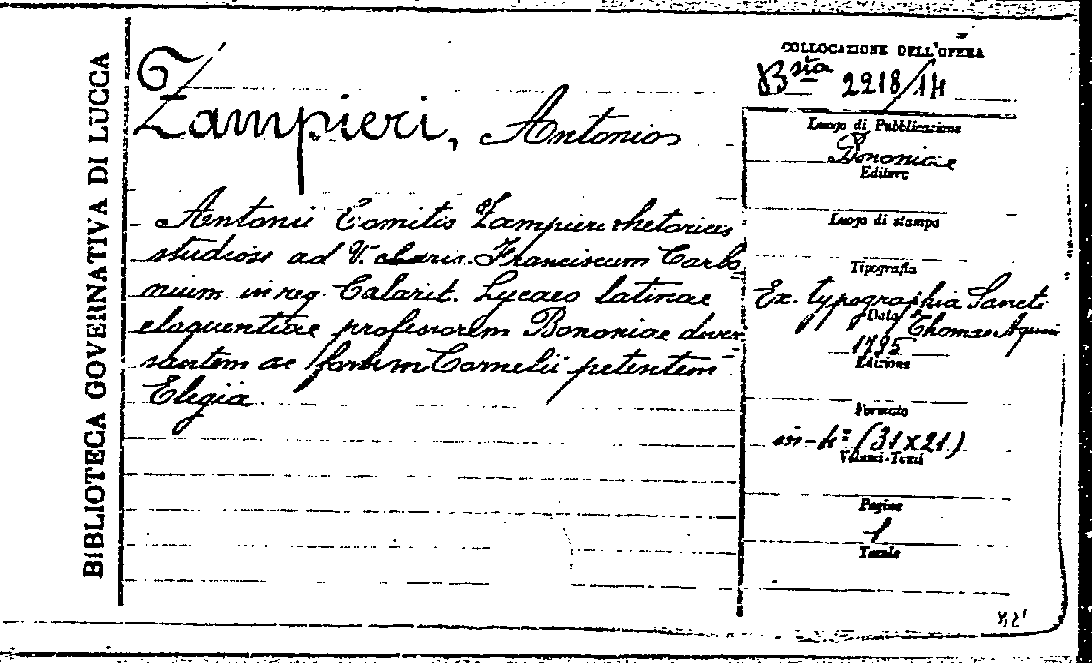 BIBLIOTECA GOVERNATIVA DI LUCCA
Zampieri, Antonio
Antonii Comitis Zampieri rhetorices
studiosi ad V. clariss. Franciscum Carbo
nium in reg. Calarit. Lycaeo latinae
eloquentiae professorem Bononiae diver
santem ac forum Cornelii petentem
Elegia
COLLOCAZIONE DELL'OPERA
Bsta 2218/14
Luogo di Pubblicazione
Bononiae
Editore
Luogo di stampa
Tipografia
Ex typographia Sancti
Data
Thomae Aquin
1795
Edizione
Formato
in-4º (31x21)
Volumi-Tomi
Pagine
1
Tavole